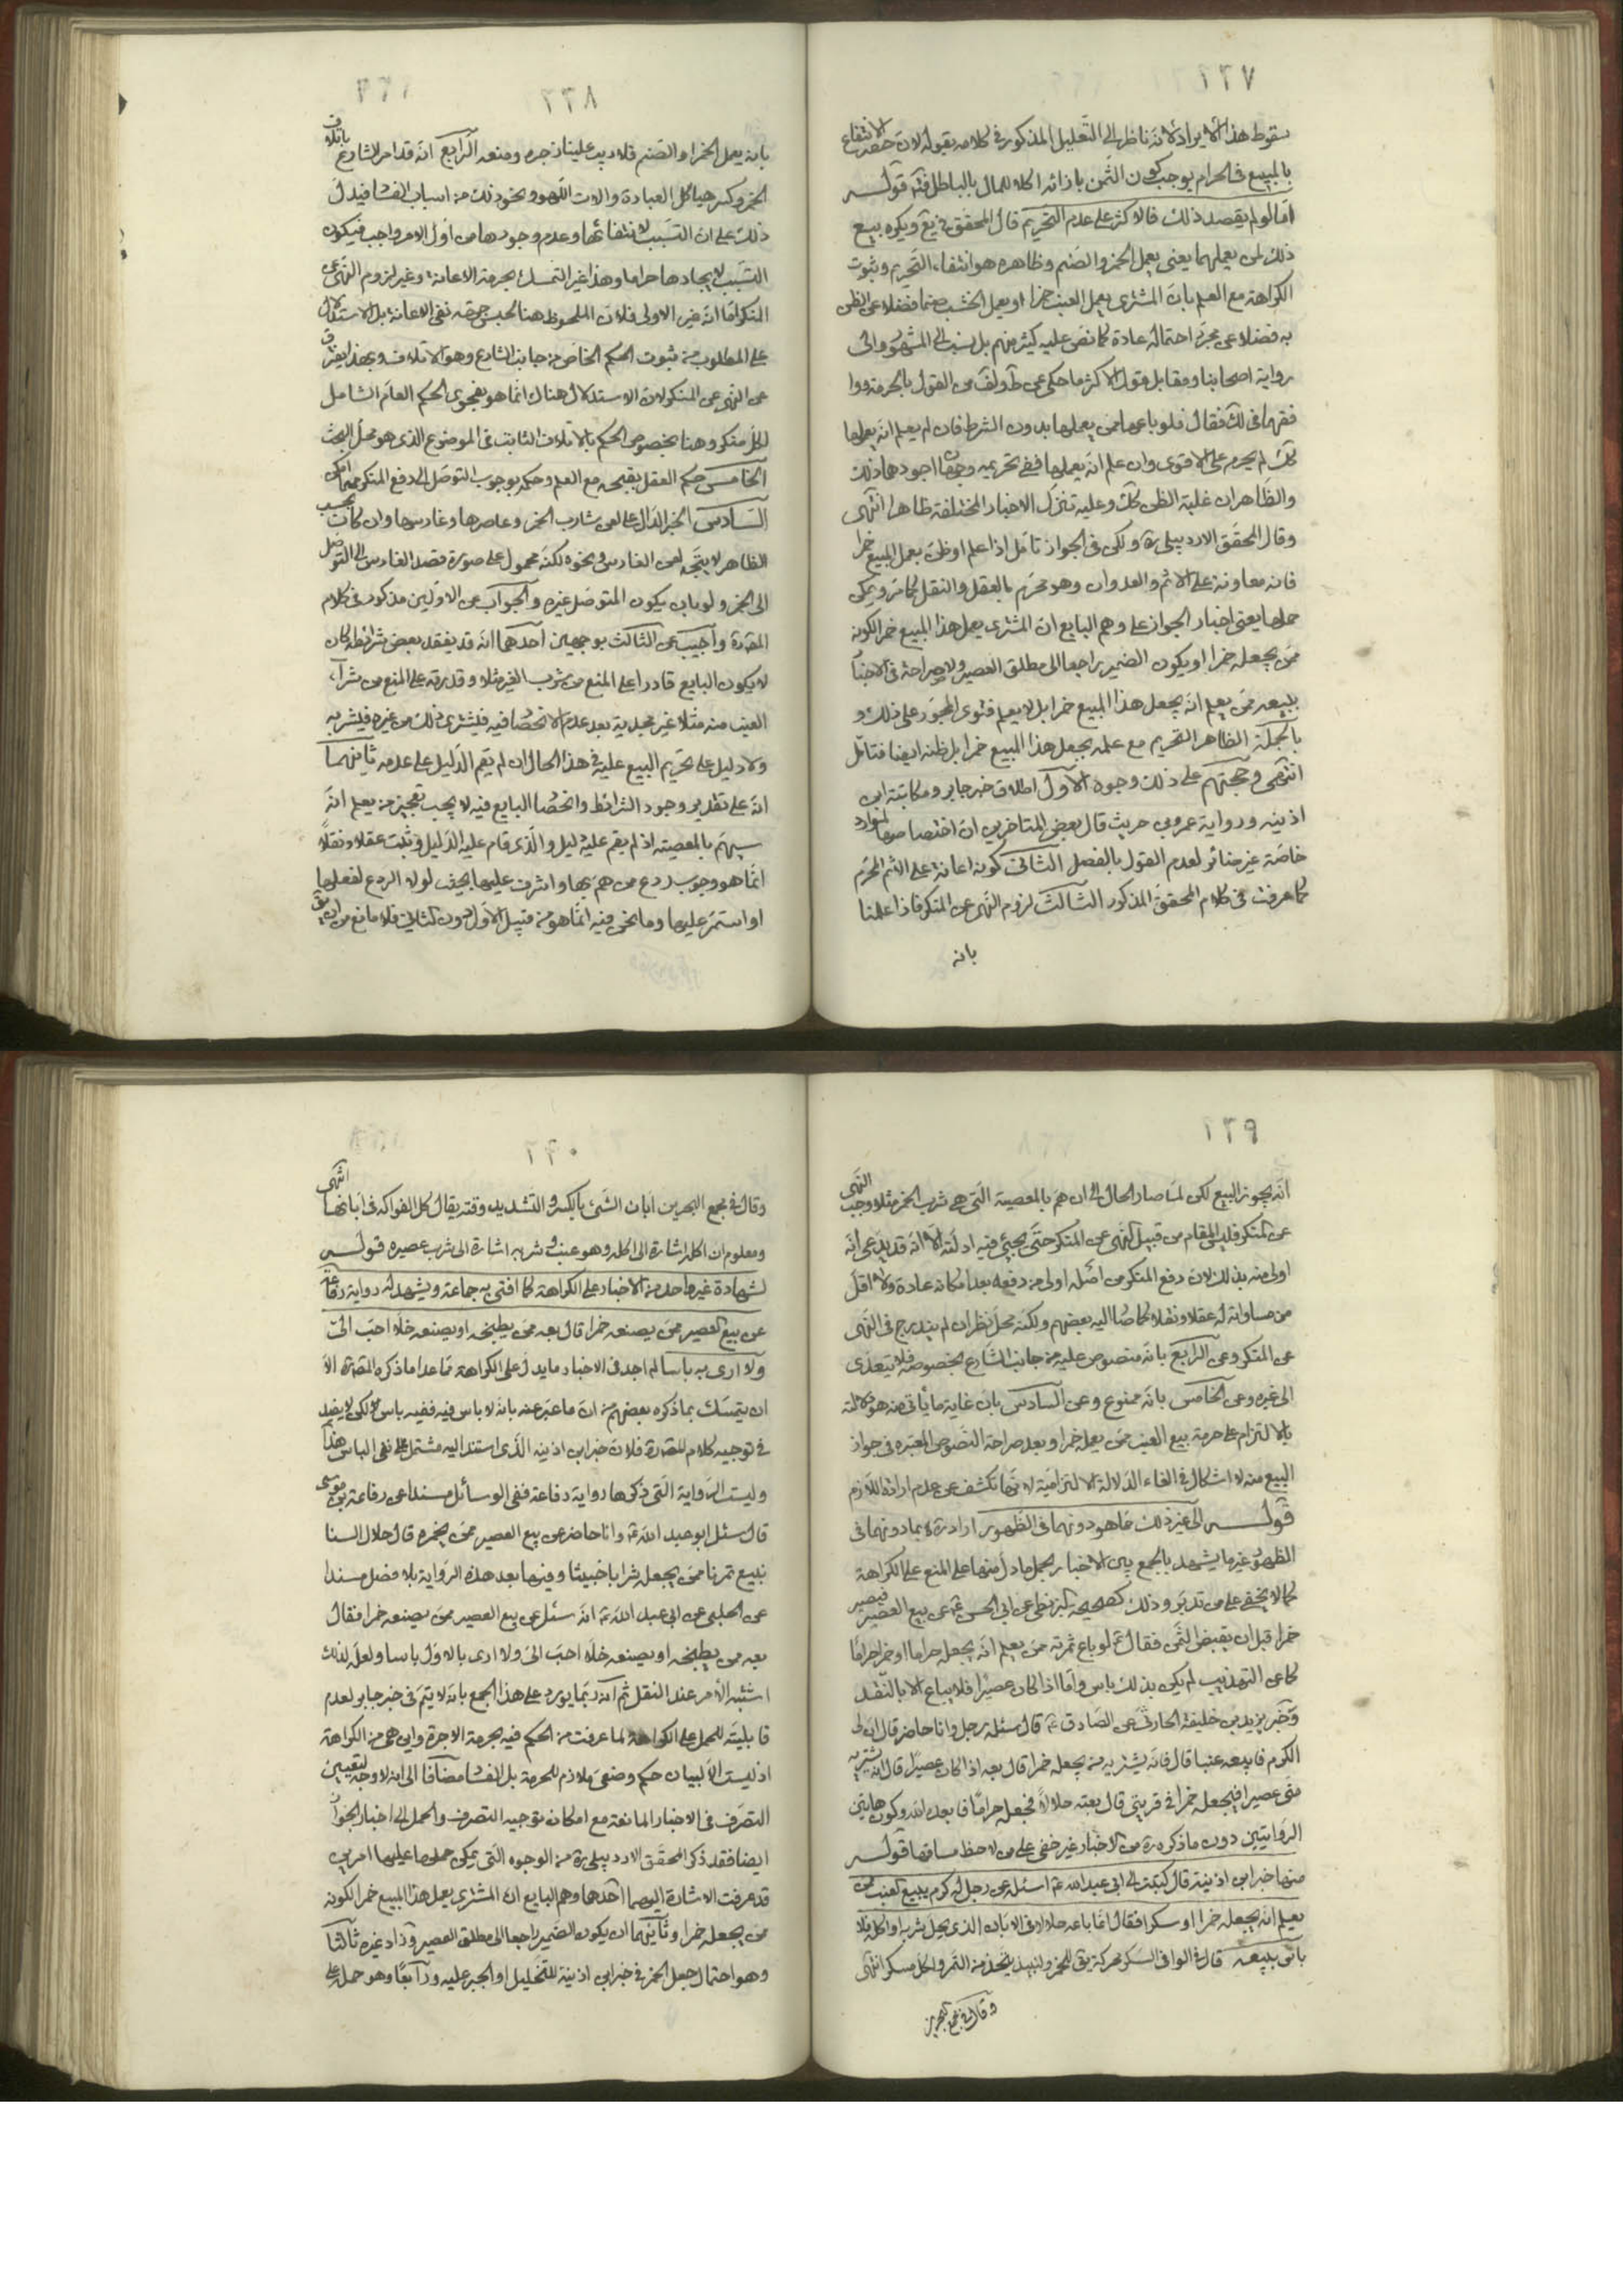 ٢٣٧
سقوط هذا الايراد لانه ناظر الى التعليل المذكور في كلامه بقوله لان حصر الانتفاع
بالمبيع في الحرام يوجب كون الثمن بازائه اكلا للمال بالباطل قوله
امّا لو لم يقصد ذلك فالاكثر على عدم التحريم قال المحقق في يع ويكره بيع
ذلك لمن يعملهما يعنى يعمل الخمر والصنم وظاهره هو انتفاء التحريم وثبوت
الكراهة مع العلم بانّ المشترى يعمل العنب خمرا او يعمل الخشب صنما فضلا عن الظن
به فضلا عن مجرّد احتماله عادة كما نص عليه كثير منهم بل نسب الى المشهور والى
رواية اصحابنا ومقابل قول الاكثر ما حكى عن
فقال فلو باعهما ممن يعملهما بدون الشرط فان لم يعلم انه يعملها
كك لم يحرم على الاقوى وان علم انه يعملها ففى تحريمه وجهان اجودهما ذلك
والظاهر ان غلبة الظن كك وعليه تنزل الاخبار المختلفة ظاهرا انتهى
وقال المحقق الاردبيلى ره ولكن في الجواز تامل اذا علم او ظن بعمل المبيع خمرا
فانه معاونة على الاثم والعدوان وهو محرّم بالعقل والنقل كما مرّ ويمكن
حملها يعنى اخبار الجواز على وهم البايع ان المشترى يعمل هذا المبيع خمرا لكونه
ممن يجعله خمرا او يكون الضمير راجعا الى مطلق العصير ولا صراحة في الاخبار
ببيعه ممن يعلم انه يجعل هذا المبيع خمرا بل لا يعلم فتوى المجوّز على ذلك و
بالجملة الظاهر التحريم مع علمه بجعل هذا المبيع خمرا بل ظنه ايضا فتامّل
انتهى وحجتهم على ذلك وجوه الاول اطلاق خبر جابر ومكاتبة ابن
اذينه ورواية عمرو بن حريث قال بعض المتاخرين ان اختصاصها بموارد
خاصّة غير ضائر لعدم القول بالفصل الثانى كونه اعانة على الاثم المحرّم
كما عرفت في كلام المحقق المذكور الثالث لزوم النهى عن المنكر فاذا علمنا
بانه
٢٣٨
بانه يعمل الخمر او الصنم فلا ريب علينا زجره ومنعه الرابع انه قد امر الشارع باتلاف
الخمر وكسر هياكل العبادة والات اللهو ونحو ذلك من اسباب الفساد فيدل
ذلك على ان التسبب لانتفائها وعدم وجودها من اول الامر واجب فيكون
التسبب لايجادها حراما وهذا غير التمسك بحرمة الاعانة وغير لزوم النهى عن
المنكر امّا انه غير الاولى فلان الملحوظ هنا ليس حرمة نفى الاعانة بل الاستدلال
على المطلوب من ثبوت الحكم الخاص من جانب الشارع وهو الاتلاف وبهذا يفترق
عن النهى عن المنكر لان الاستدلال هناك انما هو بفحوى الحكم العام الشامل
لكل منكر وهنا بخصوص الحكم بالاتلاف الثابت في الموضوع الذى هو محل البحث
الخامس حكم العقل بقبحه مع العلم وحكمه بوجوب التوصل الى دفع المنكر مهما امكن
السادس الخبر الدال على لعن شارب الخمر وعاصرها وغارسها وان كان بحسب
الظاهر لا يتّجه لعن الغارس ونحوه لكنه محمول على صورة قصد الغارس الى التوصل
الى الخمر ولو بان يكون المتوصل غيره والجواب عن الاولين مذكور في كلام
المص ره واجيب عن الثالث بوجهين احدهما انه قد يفقد بعض شرائطه كان
لا يكون البايع قادرا على المنع من شرب الخمر مثلا وقدرته على المنع من شراء
العنب منه مثلا غير مجدية بعد عدم الانحصار فيه فيشترى ذلك من غيره فيشربه
ولا دليل على تحريم البيع عليه في هذا الحال ان لم يقم الدليل على عدمه ثانيهما
انه على تقدير وجود الشرائط وانحصار البايع فيه لا يجب تعجيز من يعلم انه
سيهم بالمعصية اذ لم يقم عليه دليل والذى قام عليه الدليل وثبت عقلا ونقلا
انما هو وجوب ردع من هم بها واشرف عليها بحيث لولا الردع لفعلها
او استمر عليها وما نحن فيه انما هو من قبيل الاول دون الثانى فلا مانع من ان يق
٢٣٩
انه يجوز البيع لكن لما صار الحال الى ان هم بالمعصية التى هى شرب الخمر مثلا وجب النهى
عن المنكر فليس المقام من قبيل النهى عن المنكر حتى يجيئ فيه ادلته الا انه قد يدعى انه
اولى منه بذلك لان دفع المنكر من اصله اولى من دفعه بعد امكانه عادة ولا اقل
من مساواته له عقلا ونقلا كما صار اليه بعضهم ولكنه محل نظر ان لم يندرج في النهى
عن المنكر وعن الرابع بانه منصوص عليه من جانب الشارع بخصوصه فلا يتعدى
الى غيره وعن الخامس بانه ممنوع وعن السادس بان غاية ما يأتى منه هو دلالته
بالالتزام على حرمة بيع العنب ممن يعمله خمرا وبعد صراحة النصوص المعتبرة في جواز
البيع منه لا اشكال في الغاء الدلالة الالتزامية لانها تكشف عن عدم ارادة اللازم
قوله الى غير ذلك مما هو دونهما في الظهور اراد ره بما دونهما في
الظهور غير ما يشهد بالجمع بين الاخبار بحمل ما دل منها على المنع على الكراهة
كما لا يخفى على من تدبّر وذلك كصحيحة البزنطى عن ابى الحسن ع عن بيع العصير فيصير
خمرا قبل ان يقبض الثمن فقال ع لو باع ثمرته ممن يعلم انه يجعله حراما او خمرا حراما
كما عن التهذيب لم يكن بذلك باس وامّا اذا كان عصيرا فلا يباع الا بالنقد
وخبر يزيد بن خليفة الحارثى عن الصادق ع قال سئله رجل وانا حاضر قال ان لى
الكرم فابيعه عنبا قال فانه يشتريه من يجعله خمرا قال بعه اذا كان عصيرا قال انه يشتريه
منى عصيرا فيجعله خمرا في قربتى قال بعته حلالا فجعله حراما فابعده الله وكون هاتين
الروايتين دون ما ذكره ره من الاخبار غير خفى على من لاحظ مساقها قوله
منها خبر ابن اذينة قال كتبت الى ابى عبد الله ع اسئله عن رجل له كرم يبيع العنب ممن
يعلم انه يجعله خمرا او سكرا فقال انما باعه حلالا في الابان الذى يحل شربه او اكله فلا
باس ببيعه قال في الوافى السكر محركة يق للخمر ولنبيذ يتخذ من التمر ولكل مسكر انتهى
وقال في مجمع البحرين
٢٤٠
وقال في مجمع البحرين ابان الشئ بالكسر والتشديد وقته يقال كل الفواكه في ابانها انتهى
ومعلوم ان اكله اشارة الى اكله وهو عنب وشربه اشارة الى شرب عصيره قوله
لشهادة غير واحد من الاخبار على الكراهة كما افتى به جماعة ويشهد له رواية رفاعة
عن بيع العصير ممن يصنعه خمرا قال بعه ممن يطبخه او يصنعه خلا احبّ الىّ
ولا ارى به باسا لم اجد في الاخبار ما يدل على الكراهة ممّا عدا ما ذكره المص ره الا
ان يتمسك بما ذكره بعضهم من ان ما عبر عنه بانه لا باس فيه ففيه باس ولكن لا يفيد
في توجيه كلام المص ره فلان خبر ابن اذينه الذى استند اليه مشتمل على نفى الباس هذا
وليست الرواية التى ذكرها رواية رفاعة ففى الوسائل مسندا عن رفاعة بن موسى
قال سئل ابو عبد الله ع وانا حاضر عن بيع العصير ممن يخمره قال حلال السنا
نبيع تمرنا ممن يجعله شرابا خبيثا وفيها بعد هذه الرواية بلا فصل مسندا
عن الحلبى عن ابى عبد الله ع انه سئل عن بيع العصير ممن يصنعه خمرا فقال
بعه ممن يطبخه او يصنعه خلا احب الىّ ولا ارى بالاول باسا ولعله لذلك
اشتبه الامر عند النقل ثم انه ربما يورد على هذا الجمع بانه لا يتم في خبر جابر لعدم
قابليته للحمل على الكراهة لما عرفت من الحكم فيه بحرمة الاجرة واين هى من الكراهة
اذ ليست الا لبيان حكم وضعى ملازم للحرمة بل الفساد مضافا الى انه لا وجه لتعيين
التصرف في الاخبار المانعة مع امكان توجيه التصرف والحمل الى اخبار الجواز
ايضا فقد ذكر المحقق الاردبيلى ره من الوجوه التى يمكن حملها عليها امرين
قد عرفت الاشارة اليهما احدهما وهم البايع ان المشترى يعمل هذا المبيع خمرا لكونه
ممن يجعله خمرا وثانيهما ان يكون الضمير راجعا الى مطلق العصير وزاد غيره ثالثا
وهو احتمال جعل الخمر في خبر ابن اذينة للتخليل او الجبر عليه ورابعا وهو حمله على